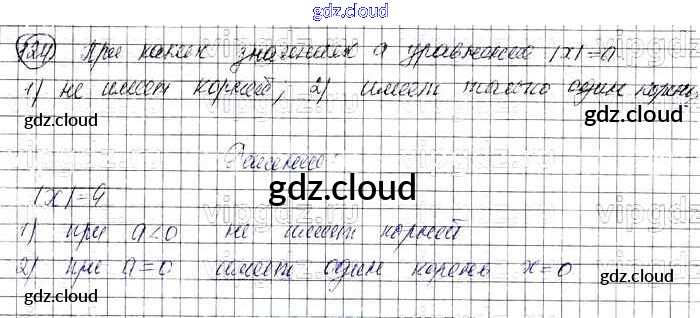 gdz.cloud
124 При каких значениях a уравнение |x|=a
1) не имеет корней; 2) имеет только один корень.
gdz.cloud gdz.cloud
Решение:
gdz.cloud
|x|=a
1) при a<0 не имеет корней
2) при a=0 имеет один корень x=0
gdz.cloud gdz.cloud
gdz.cloud